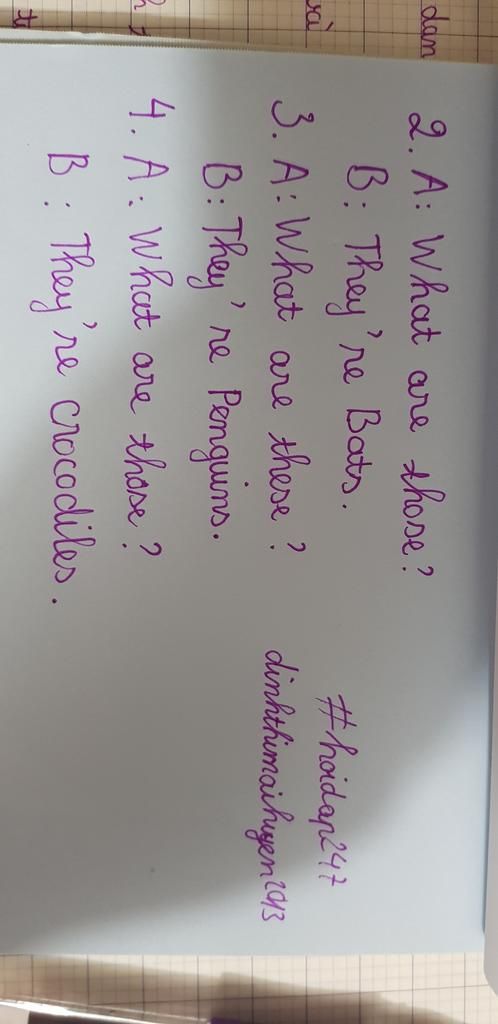 2. A: What are those?
B: They're Bats.
3. A: What are these?
B: They're Penguins.
4. A: What are those?
B: They're crocodiles.
#hoidap247
dinhthimaihuyen2913
dan
và